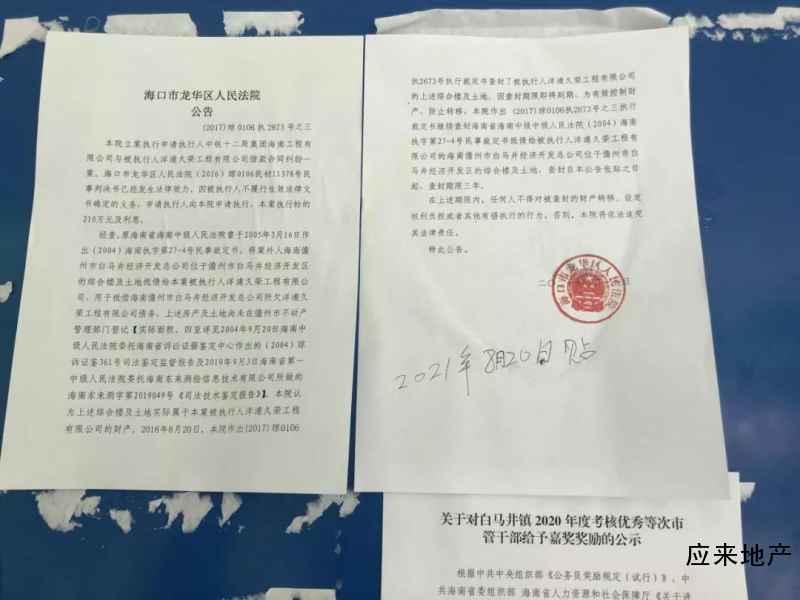 海口市龙华区人民法院
公告
(2017)琼0106执2673号之三
本院立案执行申请执行人中铁十二局集团海南工程有
限公司与被执行人洋浦久荣工程有限公司借款合同纠纷一
案，海口市龙华区人民法院（2016）琼0106民初11376号民
事判决书已经发生法律效力，因被执行人不履行生效法律文
书确定的义务，申请执行人向本院申请执行，本案执行标的
210万元及利息。
经查，原海南省海南中级人民法院曾于2005年3月16日作
出（2004）海南执字第27-4号民事裁定书，将案外人海南儋
州市白马井经济开发总公司位于儋州市白马井经济开发区
的综合楼及土地抵债给本案被执行人洋浦久荣工程有限公
司，用于抵偿海南儋州市白马井经济开发总公司所欠洋浦久
荣工程有限公司债务，上述房产及土地尚未在儋州市不动产
管理部门登记【实际面积、四至详见2004年9月20日海南中
级人民法院委托海南省诉讼证据鉴定中心作出的（2004）琼
诉证鉴361号司法鉴定监督报告及2019年9月3日海南省第一
中级人民法院委托海南东来测绘信息技术有限公司所做的
海南东来测字第2019049号《司法技术鉴定报告》】，本院认
为上述综合楼及土地实际属于本案被执行人洋浦久荣工程
有限公司的财产，2018年8月20日，本院作出(2017)琼0106
执2673号执行裁定书查封了被执行人洋浦久荣工程有限公司
的上述综合楼及土地。因查封期限即将到期，为有效控制财
产，防止转移，本院作出（2017)琼0106执2673号之三执行
裁定书继续查封海南省海南中级人民法院（2004）海南
执字第27-4号民事裁定书抵债给被执行人洋浦久荣工程有
限公司的海南儋州市白马井经济开发总公司位于儋州市白
马井经济开发区的综合楼及土地，查封自本公告张贴之日
起，查封期限三年。
在上述期限内，任何人不得对被查封的财产转移、设定
权利负担或者其他有碍执行的行为，否则，本院将依法追究
其法律责任。
特此公告。
海口市龙华区人民法院
2021年8月20日贴
关于对白马井镇2020年度考核优秀等次市
管干部给予嘉奖奖励的公示
根据中共中央组织部《公务员奖励规定（试行）》、中
共海南省委组织部 海南省人力资源和社会保障厅《关于
应来地产